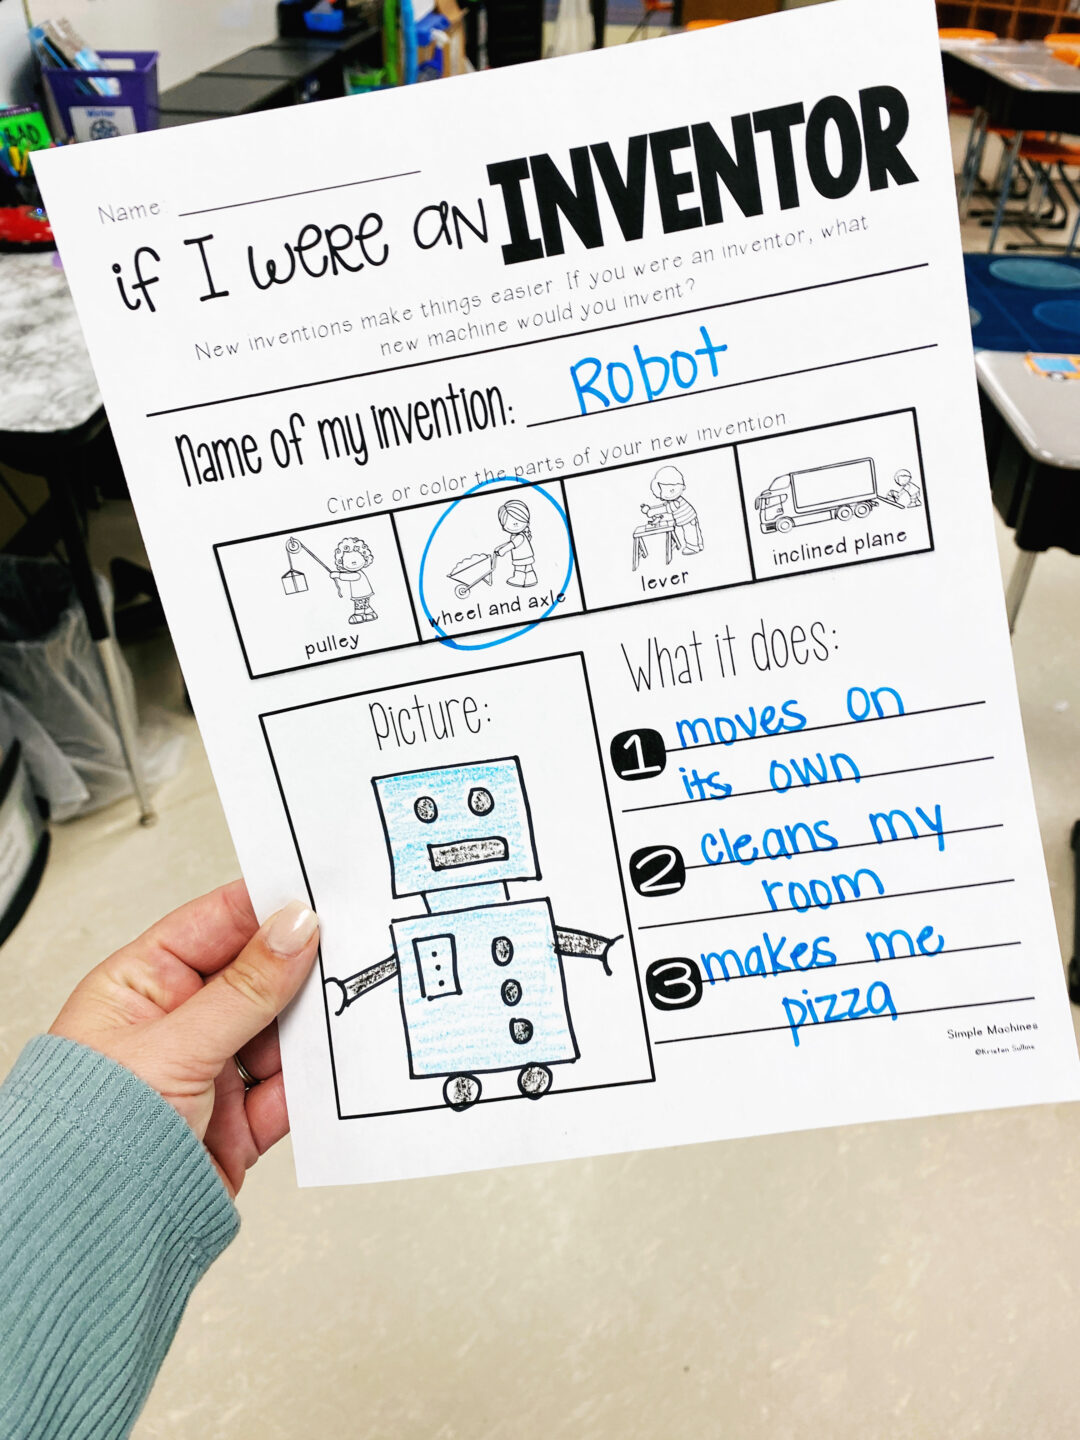 BAD
Name:
if I were an INVENTOR
New inventions make things easier. If you were an inventor, what
new machine would you invent?
Name of my invention: Robot
Circle or color the parts of your new invention
pulley
wheel and axle
lever
inclined plane
Picture:
What it does:
1 moves on
its own
2 cleans my
room
3 makes me
pizza
Simple Machines